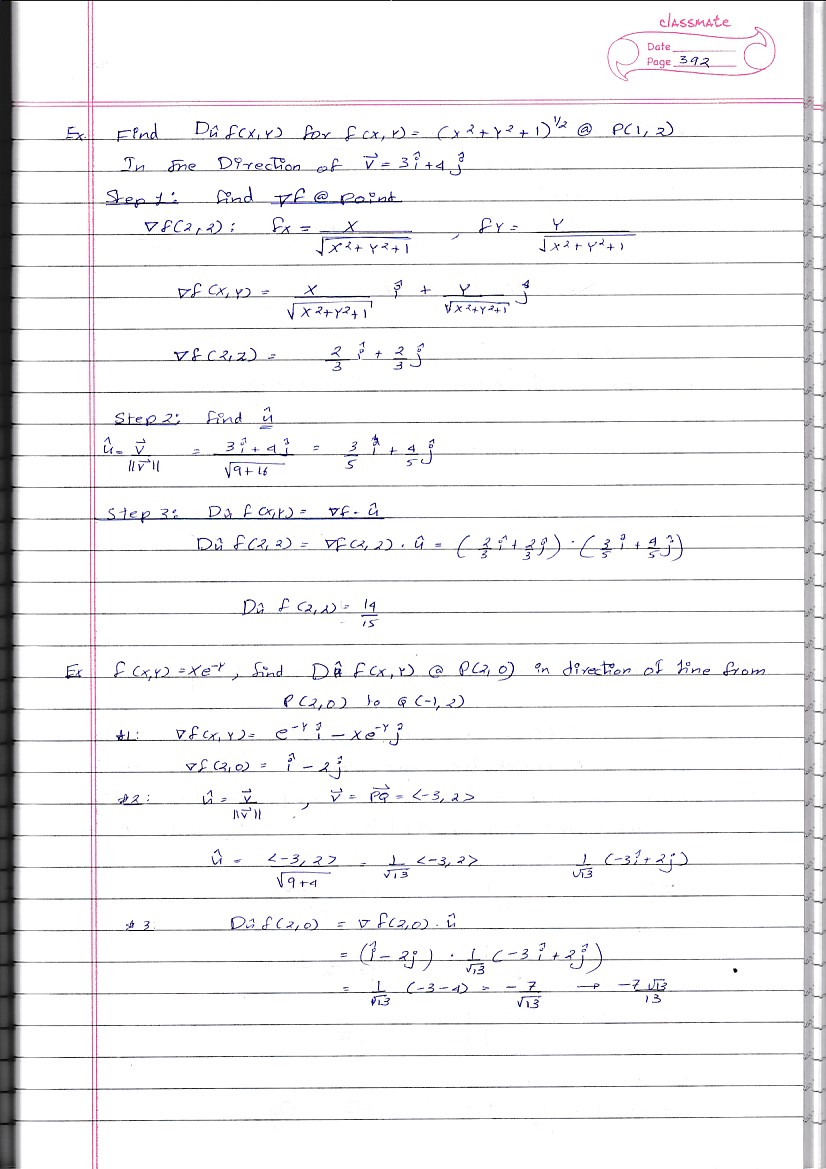 classmate
Date
Page 392
Ex. Find Dû f(x,y) for f(x,y) = (x²+y²+1)^1/2 @ P(1,2)
In the Direction of v⃗ = 3î+4ĵ
Step 1: find ∇f @ point
∇f(2,2): fx = x/√(x²+y²+1) , fy = y/√(x²+y²+1)
∇f(x,y) = x/√(x²+y²+1) î + y/√(x²+y²+1) ĵ
∇f(2,2) = 2/3 î + 2/3 ĵ
Step 2: find û
û = v⃗/||v⃗|| = (3î+4ĵ)/√(9+16) = 3/5 î + 4/5 ĵ
Step 3: Dû f(x,y) = ∇f · û
Dû f(2,2) = ∇f(2,2) · û = (2/3 î + 2/3 ĵ) · (3/5 î + 4/5 ĵ)
Dû f(2,2) = 14/15
Ex f(x,y) = xe^-y, find Dû f(x,y) @ P(2,0) in direction of line from
P(2,0) to Q(-1,2)
#1: ∇f(x,y) = e^-y î - xe^-y ĵ
∇f(2,0) = î - 2ĵ
#2: û = v⃗/||v⃗|| , v⃗ = PQ⃗ = <-3,2>
û = <-3,2>/√(9+4) = 1/√13 <-3,2> 1/√13 (-3î+2ĵ)
#3 Dû f(2,0) = ∇f(2,0) · û
= (î-2ĵ) · 1/√13 (-3î+2ĵ)
= 1/√13 (-3-4) = -7/√13 → -7√13/13